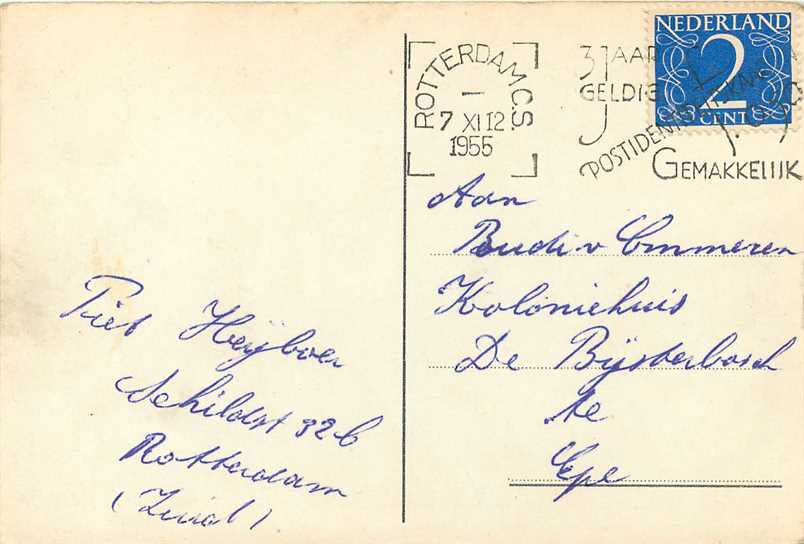 ROTTERDAM C.S.
7 XI 12
1955
3 JAAR
GELDIG
GEMAKKELIJK
NEDERLAND
2
CENT
Aan
Rudi v Ommeren
Koloniehuis
De Bijsterbosch
te
Epe
Piet Heijboer
Schildst 32b
Rotterdam
(Zuid)